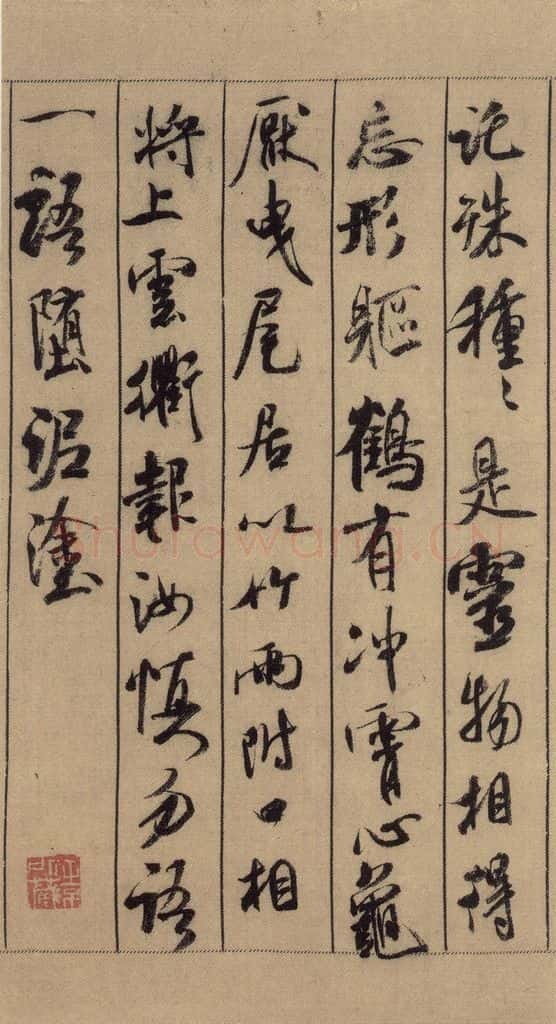 託殊種々是靈物相得
忘形軀鶴有冲霄心龜
厭曳尾居以竹兩附口相
將上雲衢報汝慎勿語
一語堕泥塗
Shufawang.CN